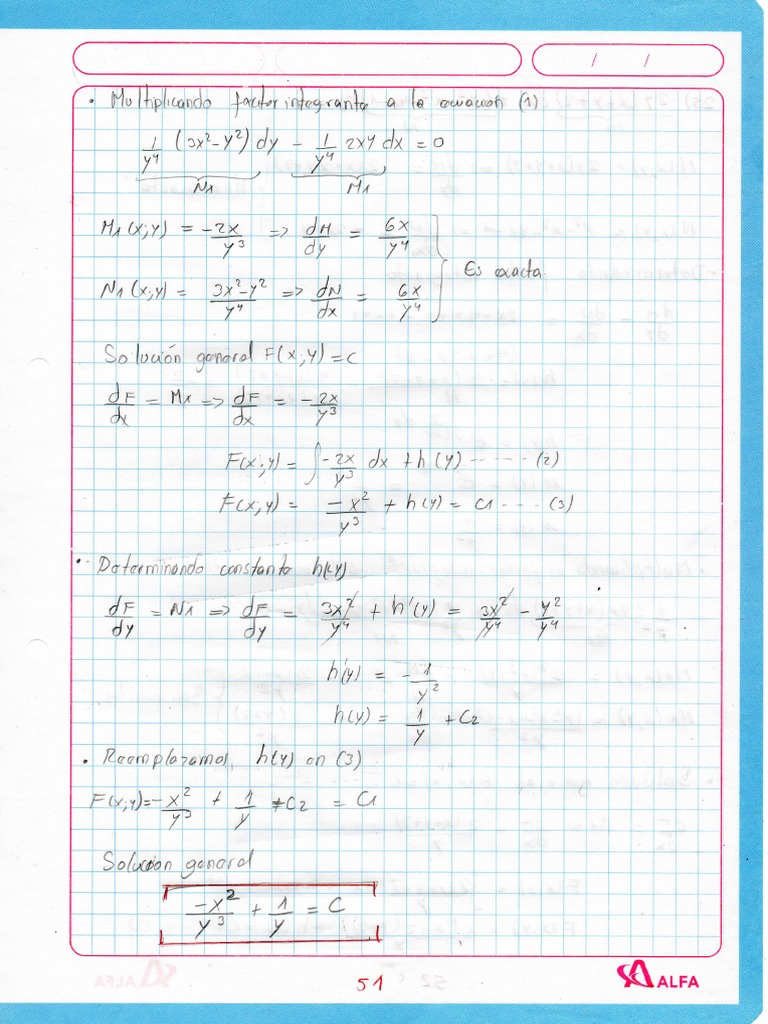 / /
• Multiplicando factor integrante a la ecuación (1)
1/y⁴ (3x²-y²) dy - 1/y⁴ 2xy dx = 0
N1 M1
M1(x;y) = -2x/y³ => dM/dy = 6x/y⁴
Es exacta
N1(x;y) = 3x²-y²/y⁴ => dN/dx = 6x/y⁴
Solución general F(x;y) = c
dF/dx = M1 => dF/dx = -2x/y³
F(x;y) = ∫ -2x/y³ dx + h(y) ------ (2)
F(x;y) = -x²/y³ + h(y) = C1 --- (3)
• Determinando constante h(y)
dF/dy = N1 => dF/dy = 3x²/y⁴ + h'(y) = 3x²/y⁴ - y²/y⁴
h'(y) = -1/y²
h(y) = 1/y + C2
• Reemplazamos h(y) en (3)
F(x;y) = -x²/y³ + 1/y + C2 = C1
Solución general
-x²/y³ + 1/y = C
51
ALFA